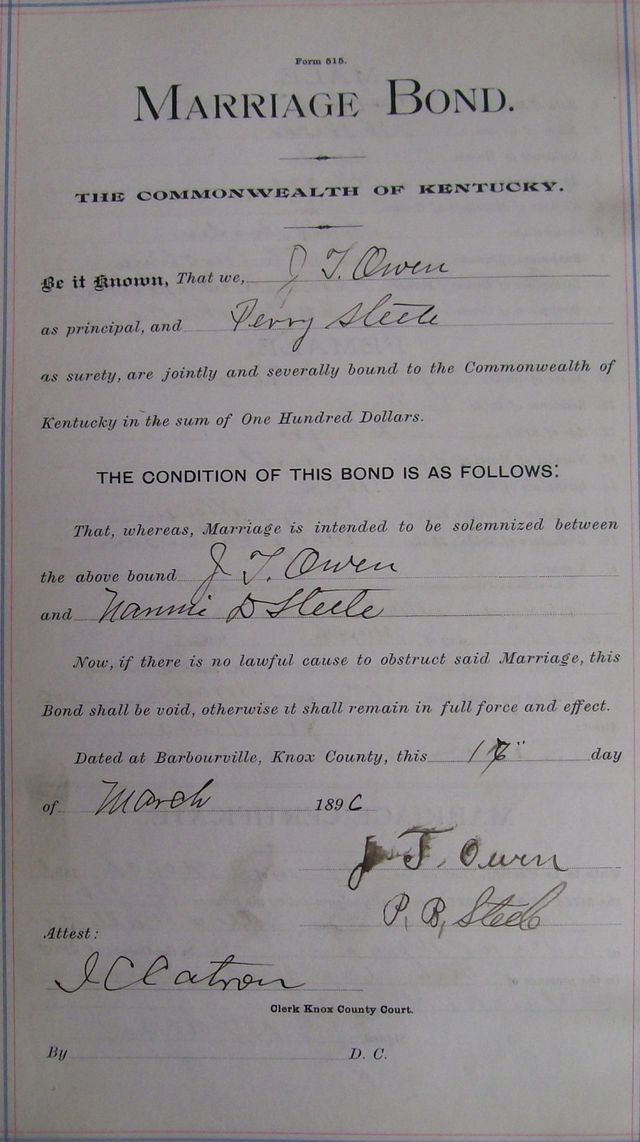 Form 515.
MARRIAGE BOND.
THE COMMONWEALTH OF KENTUCKY.
Be it Known, That we, J. T. Owen
as principal, and Perry Steele
as surety, are jointly and severally bound to the Commonwealth of
Kentucky in the sum of One Hundred Dollars.
THE CONDITION OF THIS BOND IS AS FOLLOWS:
That, whereas, Marriage is intended to be solemnized between
the above bound J. T. Owen
and Nannie D Steele
Now, if there is no lawful cause to obstruct said Marriage, this
Bond shall be void, otherwise it shall remain in full force and effect.
Dated at Barbourville, Knox County, this day
of March 1896
J. T. Owen
P. B. Steele
Attest:
J C Catron
Clerk Knox County Court.
By D. C.